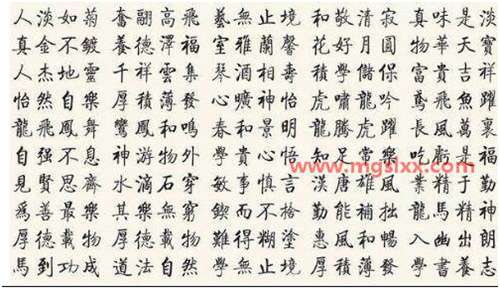 人淡如菊 奮翮高飛 藝無止境 和敬清寂 真味是淡
真金不鍍 養德澤福 室雅蘭馨 花好月圓 物華天寶
人杰地靈 千祥雲集 琴酒相壽 積學儲保 富貴吉祥
怡然自樂 厚積薄發 心曠神怡 虎嘯龍吟 鳶飛魚躍
龍飛鳳舞 鸞鳳和鳴 春和景明 龍騰虎躍 長風萬裏
自强不息 神游物外 學貴心悟 知足常樂 吃虧是福
見賢思齊 水滴石穿 敏事慎言 漢唐雄風 業精于勤
爲善最樂 其樂無窮 而不 勤能補拙 龍馬精神
厚德載物 厚德載物 難得糊塗 惠風和暢 入幽出朗
馬到功成 道法自然 學無止境 厚積薄發 學書養志
www.mgslxx.com